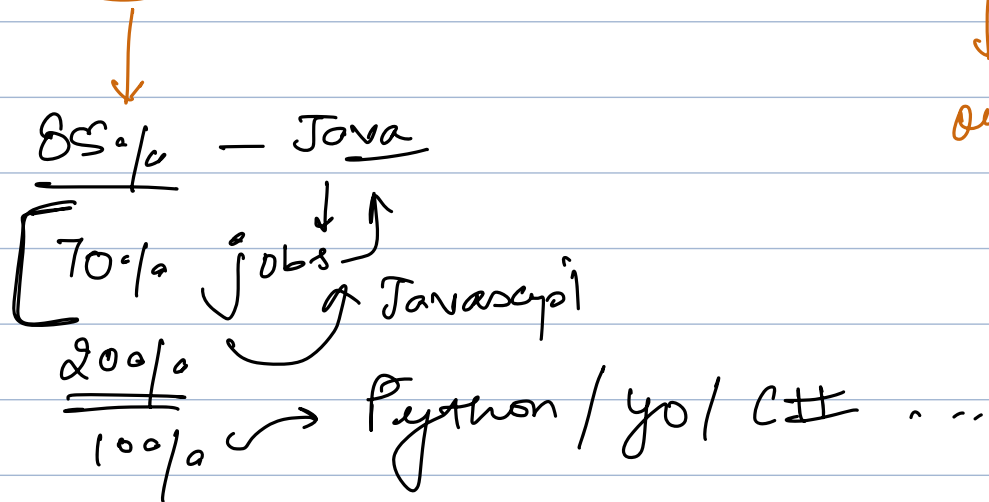 85% – Java
70% jobs
Javascript
20%
10% Python / go / C# ....